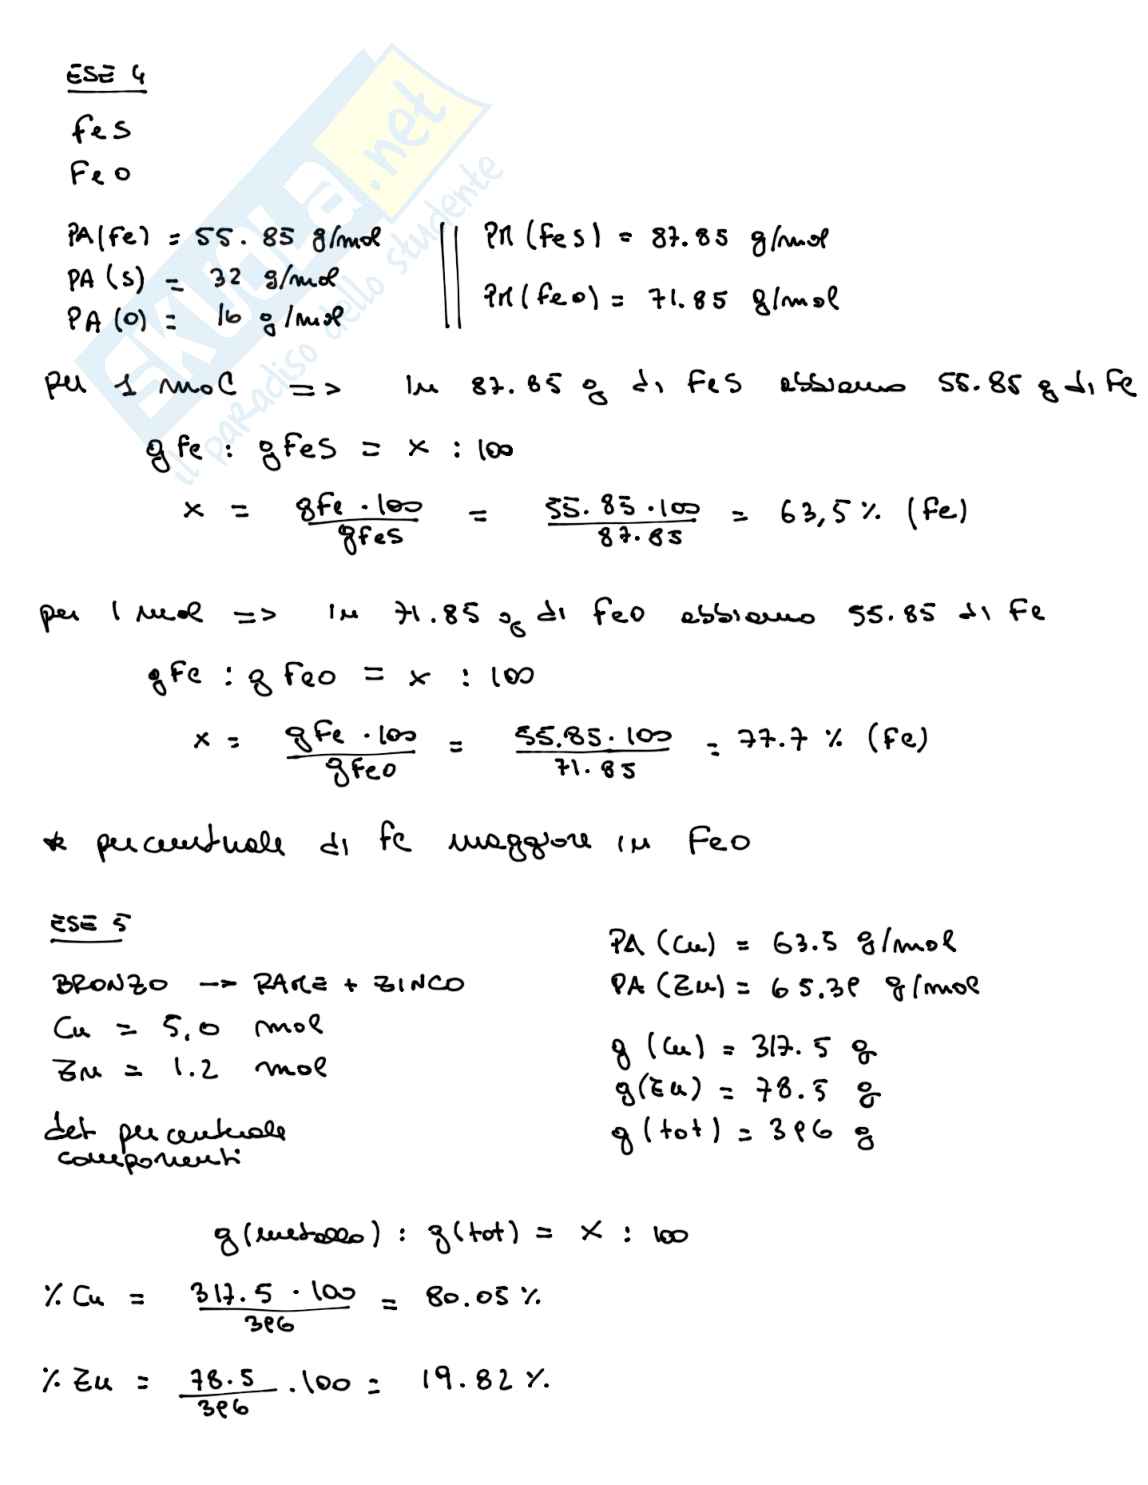 ESE 4
FeS
FeO
PA(Fe) = 55.85 g/mol
PA (S) = 32 g/mol
PA (O) = 16 g/mol
PM (FeS) = 87.85 g/mol
PM (FeO) = 71.85 g/mol
per 1 mol => in 87.85 g di FeS abbiamo 55.85 g di Fe
g Fe : g FeS = x : 100
x = gFe . 100 / gFeS = 55.85 . 100 / 87.85 = 63,5 % (Fe)
per 1 mol => in 71.85 g di FeO abbiamo 55.85 di Fe
gFe : g FeO = x : 100
x = gFe . 100 / gFeO = 55.85 . 100 / 71.85 = 77.7 % (Fe)
* percentuale di Fe maggiore in FeO
ESE 5
BRONZO -> RAME + ZINCO
Cu = 5,0 mol
Zn = 1.2 mol
det percentuale
componenti
PA (Cu) = 63.5 g/mol
PA (Zn) = 65.39 g/mol
g (Cu) = 317.5 g
g(Zn) = 78.5 g
g (tot) = 396 g
g (metallo) : g(tot) = x : 100
% Cu = 317.5 . 100 / 396 = 80.05 %
% Zn = 78.5 / 396 . 100 = 19.82 %
SKUOLA.net
il paradiso dello studente